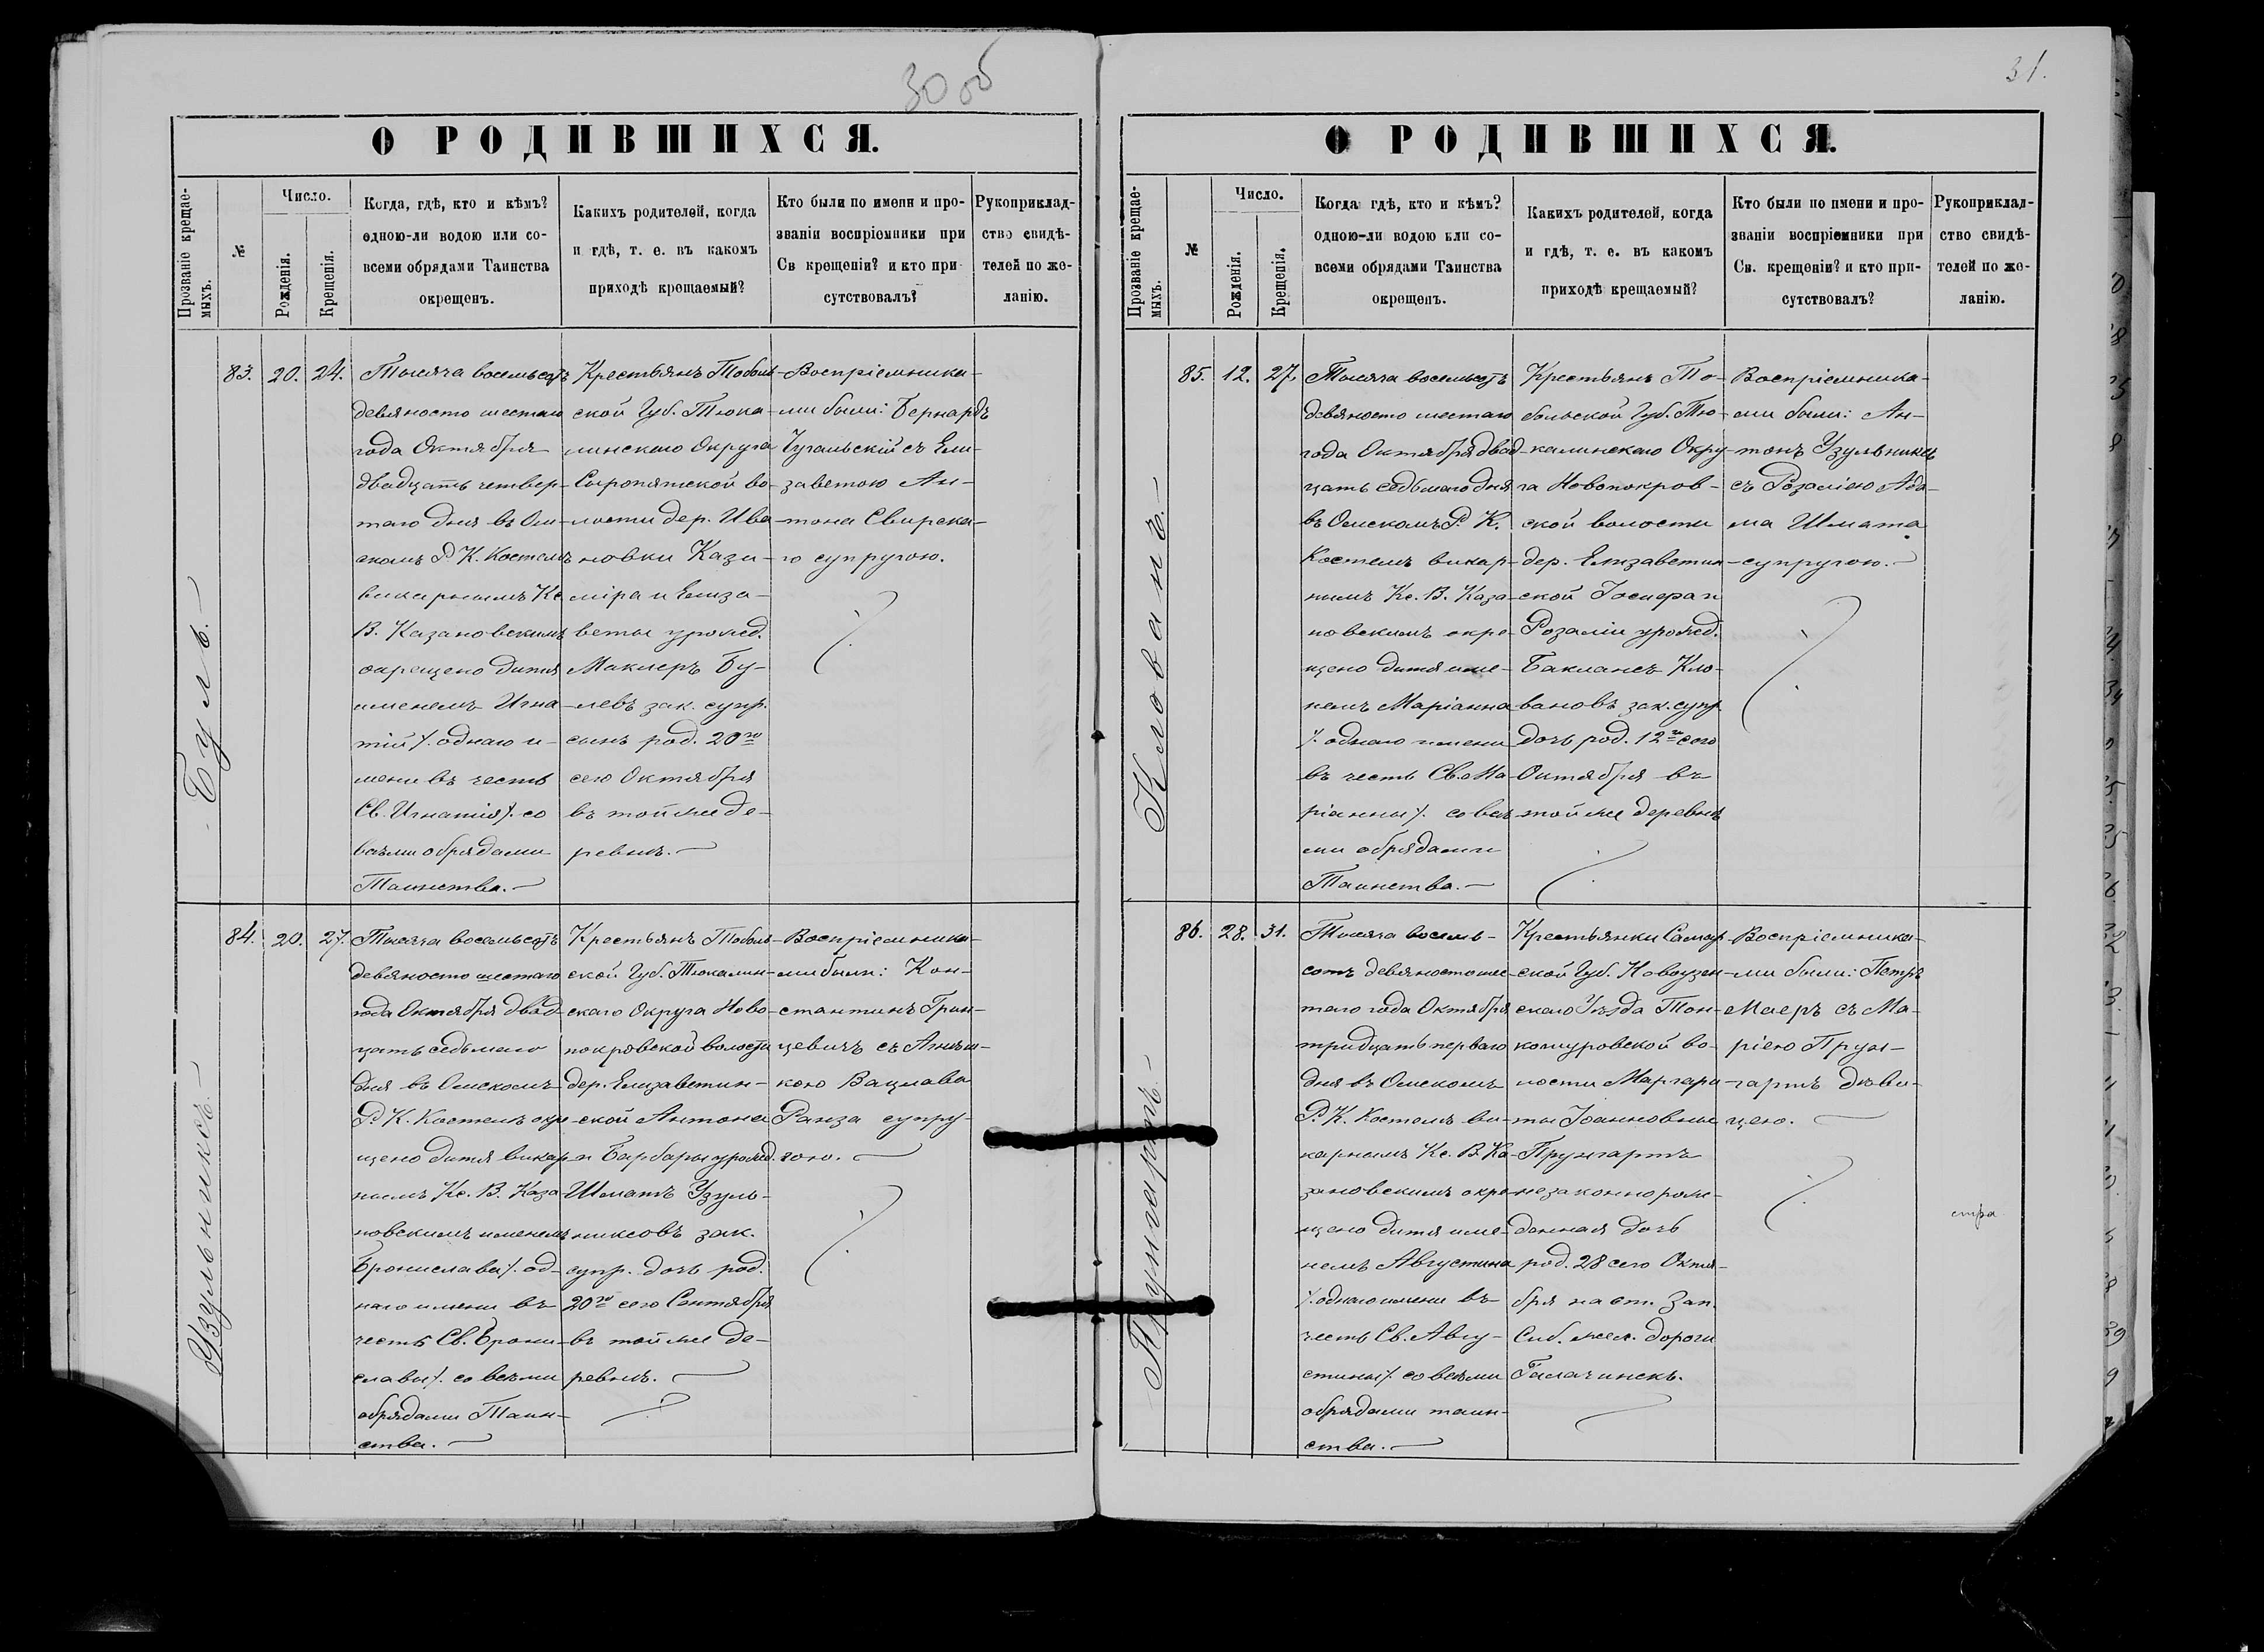 30 об
О РОДИВШИХСЯ.
Прозваніе крещае-
мыхъ.
№
Число.
Рожденія.
Крещенія.
Когда, гдѣ, кто и кѣмъ?
одною-ли водою или со-
всеми обрядами Таинства
окрещенъ.
Какихъ родителей, когда
и гдѣ, т. е. въ какомъ
приходѣ крещаемый?
Кто были по имени и про-
званіи воспріемники при
Св крещеніи? и кто при-
сутствовалъ?
Рукоприклад-
ство свидѣ-
телей по же-
ланію.
Буль.
83. 20. 24.
Тысяча восемьсотъ
девяносто шестаго
года Октября
двадцать четвер-
таго дня въ Ом-
скомъ Р. К. Костелѣ
викарнымъ Кс.
В. Казановскимъ
окрещено дитя
именемъ Игна-
тій /. одного и-
мени въ честь
Св. Игнатія /. со
всѣми обрядами
Таинства.
Крестьянъ Тоболь-
ской Губ. Тюка-
линскаго Округа
Сыропятской во-
лости дер. Ива-
новки Кази-
міра и Елиза-
веты урожд.
Маклеръ Бу-
левъ зак. супр.
сынъ род. 20го
сего Октября
въ той же де-
ревнѣ.
Воспріемника-
ми были: Бернардъ
Чугальскій съ Ели-
заветою Ан-
тона Свирска-
го супругою.
Узульниксъ.
84. 20. 27.
Тысяча восемьсотъ
девяносто шестаго
года Октября двад-
цать седьмаго
дня въ Омскомъ
Р. К. Костелѣ окре-
щено дитя викар-
нымъ Кс. В. Каза-
новскимъ именемъ
Бронислава /. од-
ного имени въ
честь Св. Брони-
славы /. со всѣми
обрядами Таин-
ства.
Крестьянъ Тоболь-
ской Губ. Тюкалин-
скаго Округа Ново-
покровской волости
дер. Елизаветин-
ской Антона
и Барбары урожд.
Шматъ Узуль-
никсовъ зак.
супр. дочь род.
20го сего Сентября
въ той же де-
ревнѣ.
Воспріемника-
ми были: Кон-
стантинъ Грин-
цевичъ съ Агнѣш-
кою Вацлава
Ранза супру-
гою.
31.
О РОДИВШИХСЯ.
Прозваніе крещае-
мыхъ.
№
Число.
Рожденія.
Крещенія.
Когда гдѣ, кто и кѣмъ?
одною-ли водою или со-
всеми обрядами Таинства
окрещенъ.
Какихъ родителей, когда
и гдѣ, т. е. въ какомъ
приходѣ крещаемый?
Кто были по имени и про-
званіи воспріемники при
Св. крещеніи? и кто при-
сутствовалъ?
Рукоприклад-
ство свидѣ-
телей по же-
ланію.
Кловане.
85. 12. 27.
Тысяча восемьсотъ
девяносто шестаго
года Октября двад-
цать седьмаго дня
въ Омскомъ Р. К.
Костелѣ викар-
нымъ Кс. В. Каза-
новскимъ окре-
щено дитя име-
немъ Маріанна
/. одного имени
въ честь Св. Ма-
ріанны /. со всѣ-
ми обрядами
Таинства.
Крестьянъ То-
больской Губ. Тю-
калинскаго Окру-
га Новопокров-
ской волости
дер. Елизаветин-
ской Іосифа и
Розаліи урожд.
Бакланез Кло-
вановъ зак. супр.
дочь род. 12го сего
Октября въ
той же деревнѣ
Воспріемника-
ми были: Ан-
тонъ Узульниксъ
съ Розаліею Ада-
ма Шмата
супругою.
Прунгартъ
86. 28. 31.
Тысяча восемь-
сотъ девяносто шес-
таго года Октября
тридцать перваго
дня въ Омскомъ
Р. К. Костелѣ ви-
карнымъ Кс. В. Ка-
зановскимъ окре-
щено дитя име-
немъ Августина
/. одного имени въ
честь Св. Авгу-
стины /. со всѣми
обрядами таин-
ства.
Крестьянки Самар-
ской Губ. Новоузен-
скаго Уѣзда Тон-
кошуровской во-
лости Маргари-
ты Іоанновны
Прунгартъ
незаконнорож-
денная дочь
род. 28 сего Октя-
бря на ст. Зап.
Сиб. жел. дороги
Галачинскъ.
Воспріемника-
ми были: Петръ
Маеръ съ Ма-
ріею Прун-
гартъ дѣви-
цею.
стра